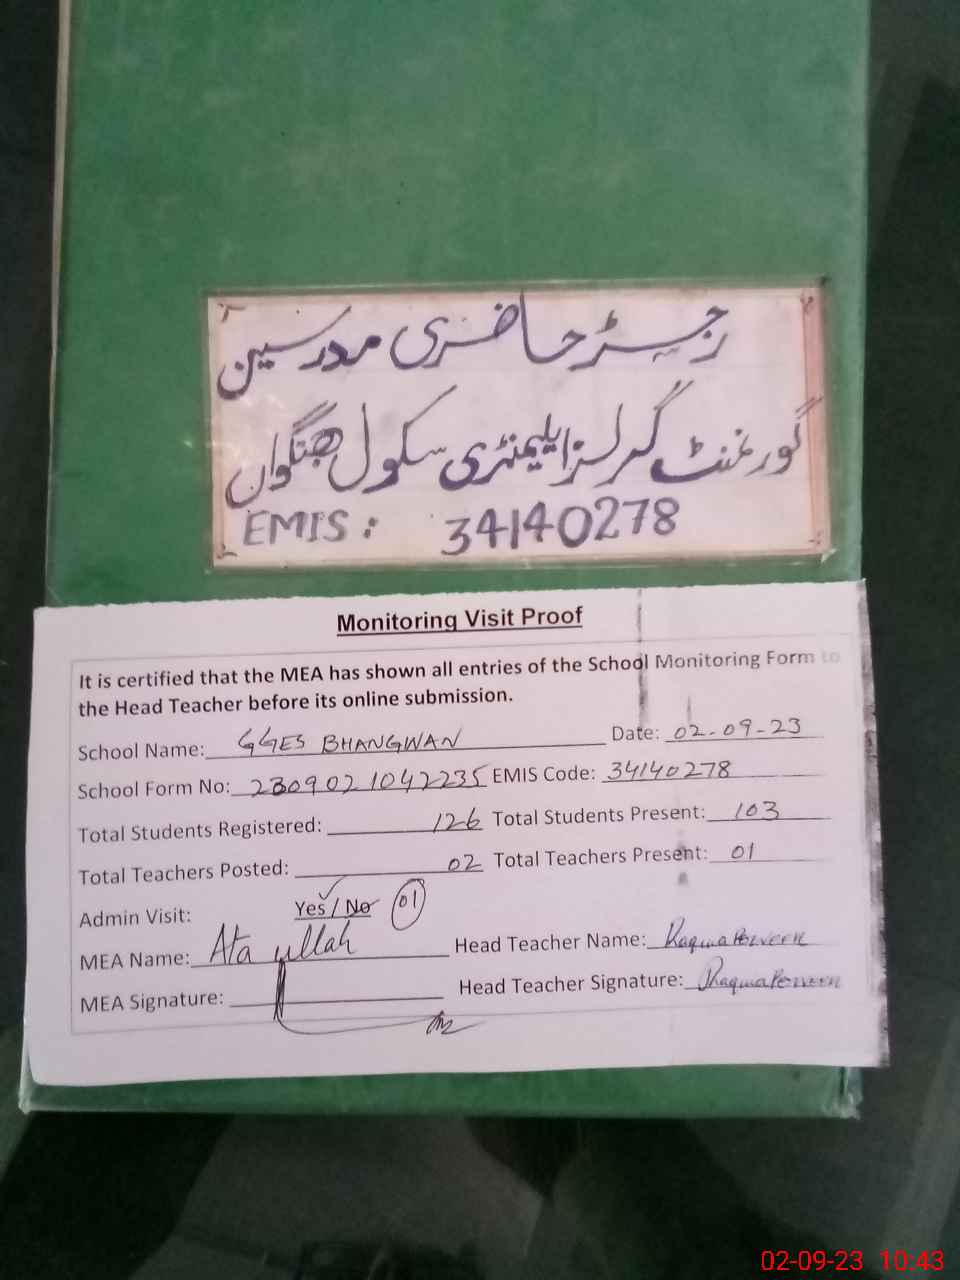 رجسٹر حاضری مدرسین
گورنمنٹ گرلز ایلیمنٹری سکول بھنگواں
EMIS: 34140278
Monitoring Visit Proof
It is certified that the MEA has shown all entries of the School Monitoring Form to
the Head Teacher before its online submission.
School Name: GGES BHANGWAN Date: 02-09-23
School Form No: 2309021042235 EMIS Code: 34140278
Total Students Registered: 126 Total Students Present: 103
Total Teachers Posted: 02 Total Teachers Present: 01
Admin Visit: Yes / No 01
MEA Name: Ata ullah Head Teacher Name: Parveen
MEA Signature: Head Teacher Signature:
02-09-23 10:43